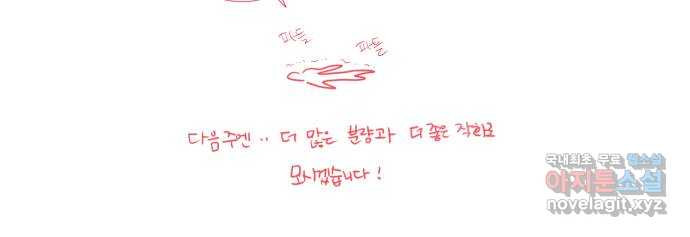 파들
파들
다음주엔.. 더 많은 분량과 더 좋은 작화로
모시겠습니다!
국내최초 무료 웹소설
아지툰소설
novelagit.xyz